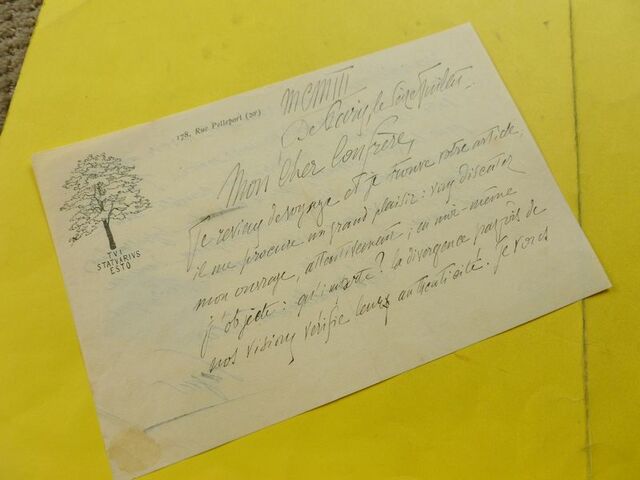 178, Rue Pelleport (20ᵉ)
MCMIII
De Paris, le Seize Juillet.
Mon Cher Confrère,
Je reviens de voyage et je trouve votre article,
il me procure un grand plaisir : vous discutez
mon ouvrage, attentivement ; en moi-même
j'objecte : qu'importe ? la divergence parfois de
nos visions vérifie leur authenticité. Je vous
TVI
STATVARIVS
ESTO